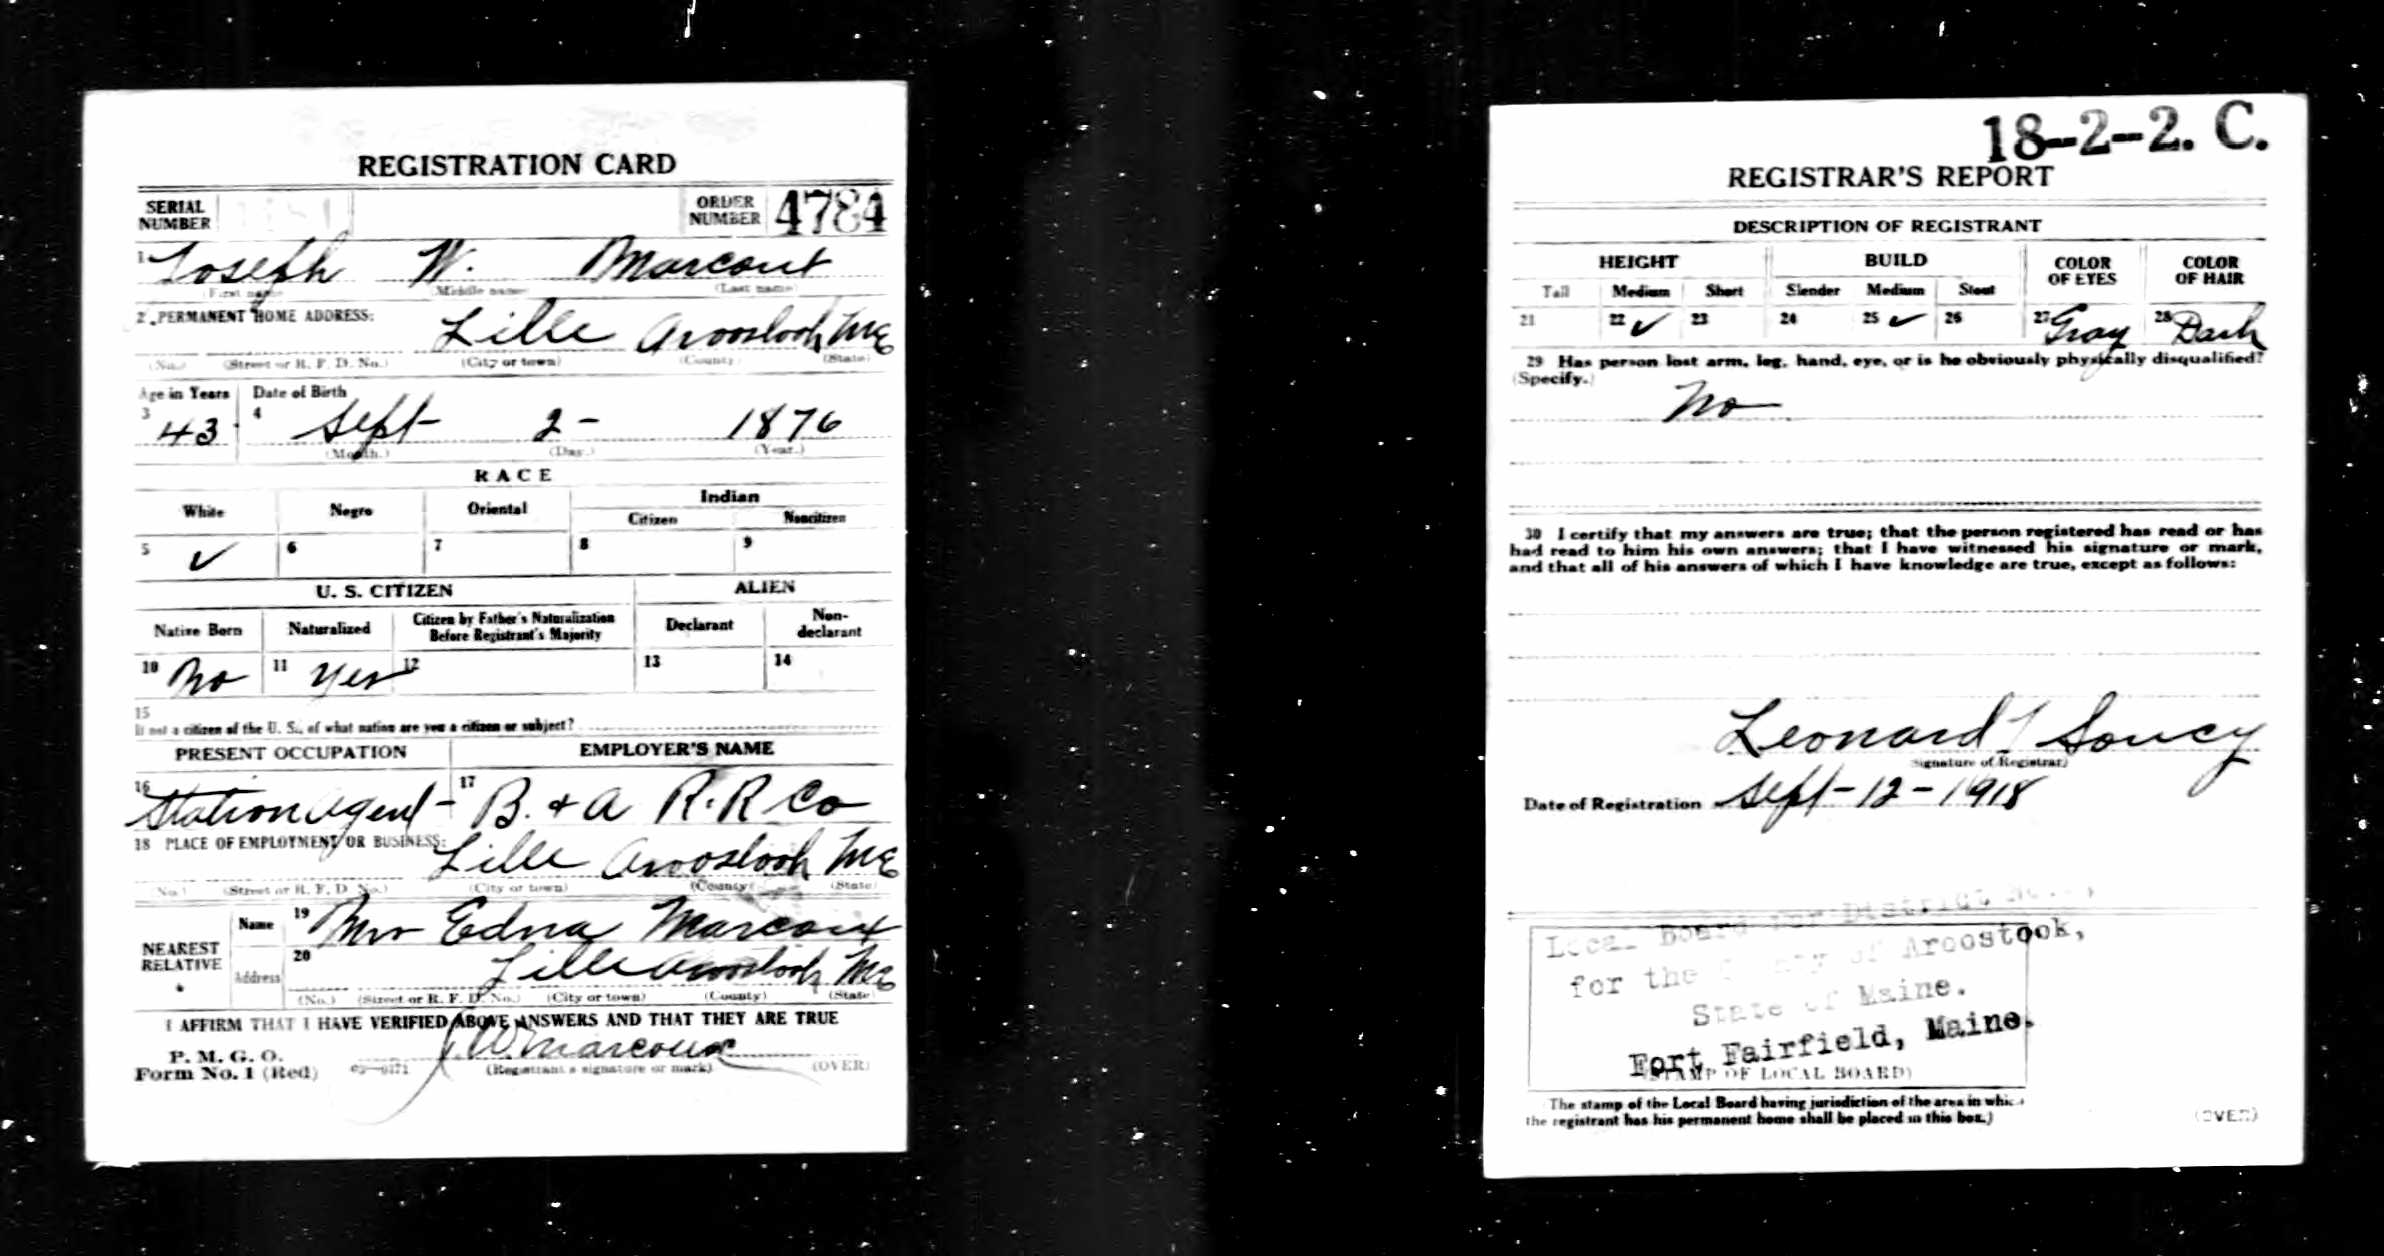 REGISTRATION CARD
SERIAL NUMBER
ORDER NUMBER 4784
1 Joseph W. Marcout
(First name) (Middle name) (Last name)
2 PERMANENT HOME ADDRESS: Lille Aroostook Me
(No.) (Street or R. F. D. No.) (City or town) (County) (State)
Age in Years Date of Birth
3 43 4 Sept - 2 - 1876
(Month.) (Day.) (Year.)
RACE
White Negro Oriental Indian
Citizen Noncitizen
5 ✓ 6 7 8 9
U. S. CITIZEN ALIEN
Native Born Naturalized Citizen by Father's Naturalization Before Registrant's Majority Declarant Non-declarant
10 No 11 Yes 12 13 14
15
If not a citizen of the U. S., of what nation are you a citizen or subject?
PRESENT OCCUPATION EMPLOYER'S NAME
16 Station Agent - 17 B. + A R.R Co
18 PLACE OF EMPLOYMENT OR BUSINESS: Lille Aroostook Me
(No.) (Street or R. F. D. No.) (City or town) (County) (State)
NEAREST RELATIVE
Name 19 Mrs Edna Marcoux
Address 20 Lille Aroostook Me
(No.) (Street or R. F. D. No.) (City or town) (County) (State)
I AFFIRM THAT I HAVE VERIFIED ABOVE ANSWERS AND THAT THEY ARE TRUE
P. M. G. O.
Form No. 1 (Red) J. W. Marcoux
(Registrant's signature or mark) (OVER)
18-2-2. C.
REGISTRAR'S REPORT
DESCRIPTION OF REGISTRANT
HEIGHT BUILD COLOR OF EYES COLOR OF HAIR
Tall Medium Short Slender Medium Stout
21 22 ✓ 23 24 25 ✓ 26 27 Gray 28 Dark
29 Has person lost arm, leg, hand, eye, or is he obviously physically disqualified?
(Specify.)
No
30 I certify that my answers are true; that the person registered has read or has
had read to him his own answers; that I have witnessed his signature or mark,
and that all of his answers of which I have knowledge are true, except as follows:
Leonard Soucy
(Signature of Registrar)
Date of Registration Sept - 12 - 1918
Local Board for District No.
for the County of Aroostook,
State of Maine.
Fort Fairfield, Maine.
(STAMP OF LOCAL BOARD)
(The stamp of the Local Board having jurisdiction of the area in which
the registrant has his permanent home shall be placed in this box.)
(OVER)